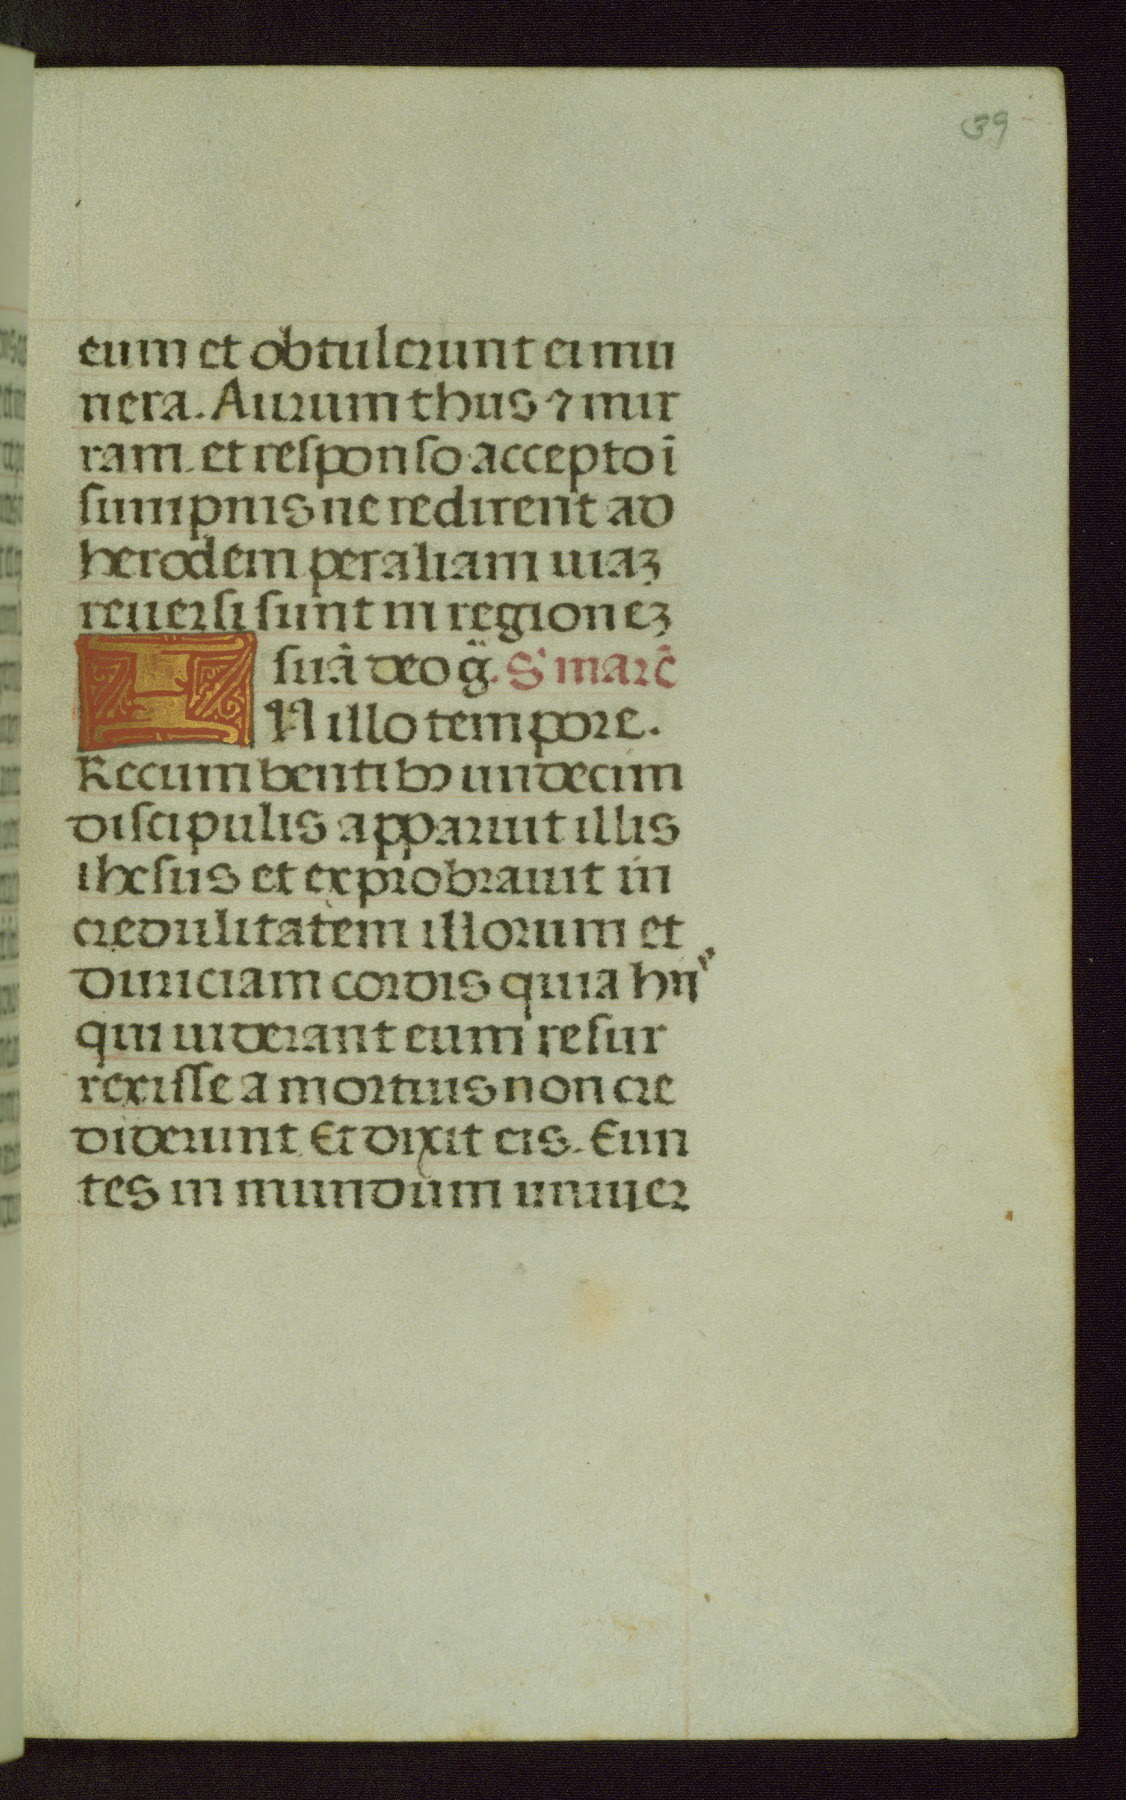 39
eum et obtulerunt ei mu
nera. Aurum thus ⁊ mir
ram. et responso accepto ī
sumpnis ne redirent ad
herodem per aliam uiaꝫ
reuersi sunt in regioneꝫ
suā deo g̃. S marc̄
IN illo tempore.
Recumbentibꝰ undecim
discipulis apparuit illis
ihesus et exprobrauit in
credulitatem illorum et
duriciam cordis quia hii
qui uiderant eum resur
rexisse a mortuis non cre
diderunt Et dixit eis. Eun
tes in mundum uniuer